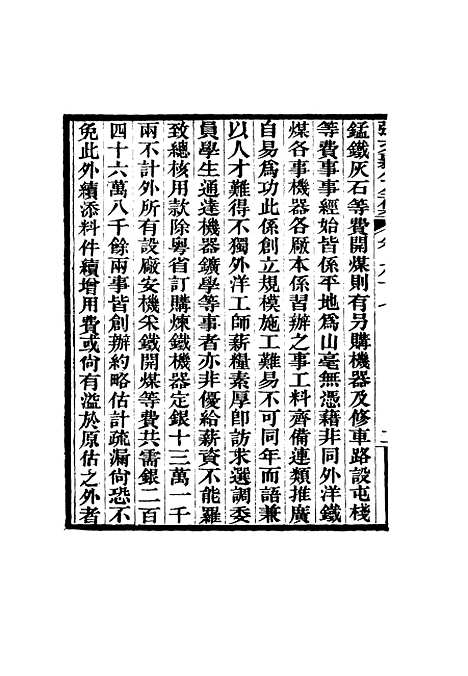 錳鐵灰石等費開煤則有另購機器及修車路設屯棧
等費事事經始皆係平地爲山毫無憑藉非同外洋鐵
煤各事機器各廠本係習辦之事工料齊備連類推廣
自易爲功此係創立規模施工難易不可同年而語兼
以人才難得不獨外洋工師薪糧素厚卽訪求選調委
員學生通達機器鑛學等事者亦非優給薪資不能羅
致總核用款除粵省訂購煉鐵機器定銀十三萬一千
兩不計外所有設廠安機采鐵開煤等費共需銀二百
四十六萬八千餘兩事皆創辦約略估計疏漏尙恐不
免此外續添料件續增用費或尙有溢於原估之外者